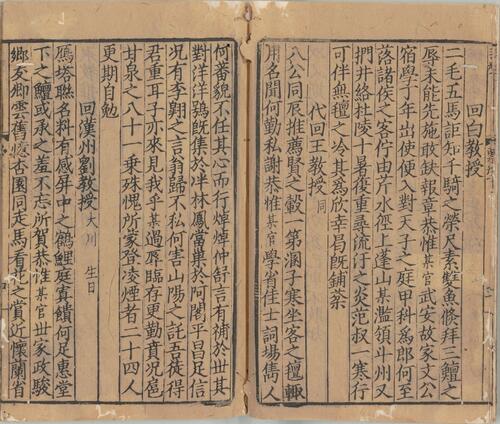 回白教授
二毛五馬詎知千騎之榮尺素雙魚脩拜三鱣之
辱未能先施敢缺報章恭惟某官武安故家文公
宿學子年出使便入對天子之庭甲科爲郎何至
落諸侯之客佇由芹水徑上蓬山某濫領斗州又
捫井絡杜陵十暑復重尋流汗之炎范叔一寒行
可伴無氊之冷其爲欣幸曷旣鋪棻
代回王教授同
八公同辰推薦賢之轂一第溷子寒坐客之氊輙
用名聞何勤私謝恭惟某官學省佳士詞場雋人
何蕃貌不任其心而行焯焯仲舒言有補於世其
對洋洋鶚旣集於泮林鳳當巢於阿閣平昌足信
况有李翺之言翁歸不私何害山陽之託吾徒得
君重耳子亦來見我乎某過辱臨存更勤賁况扈
甘泉之八十一乗殊愧所家登凌煙者二十四人
更期自勉
回漢州劉教授大川 生日
鴈塔聮名料有感昇中之鶴鯉庭寘饋何足惠堂
下之鱣或承之羞不忘所賀恭惟某官世家政駿
鄉友卿雲舊憶杏園同走馬看花之賞近懷蘭省